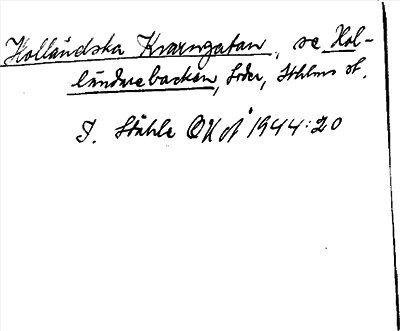 Holländska Kvarngatan, se Hol-
ländarebacken, Söder, Sthlms st.
I. Ståhle 1944:20